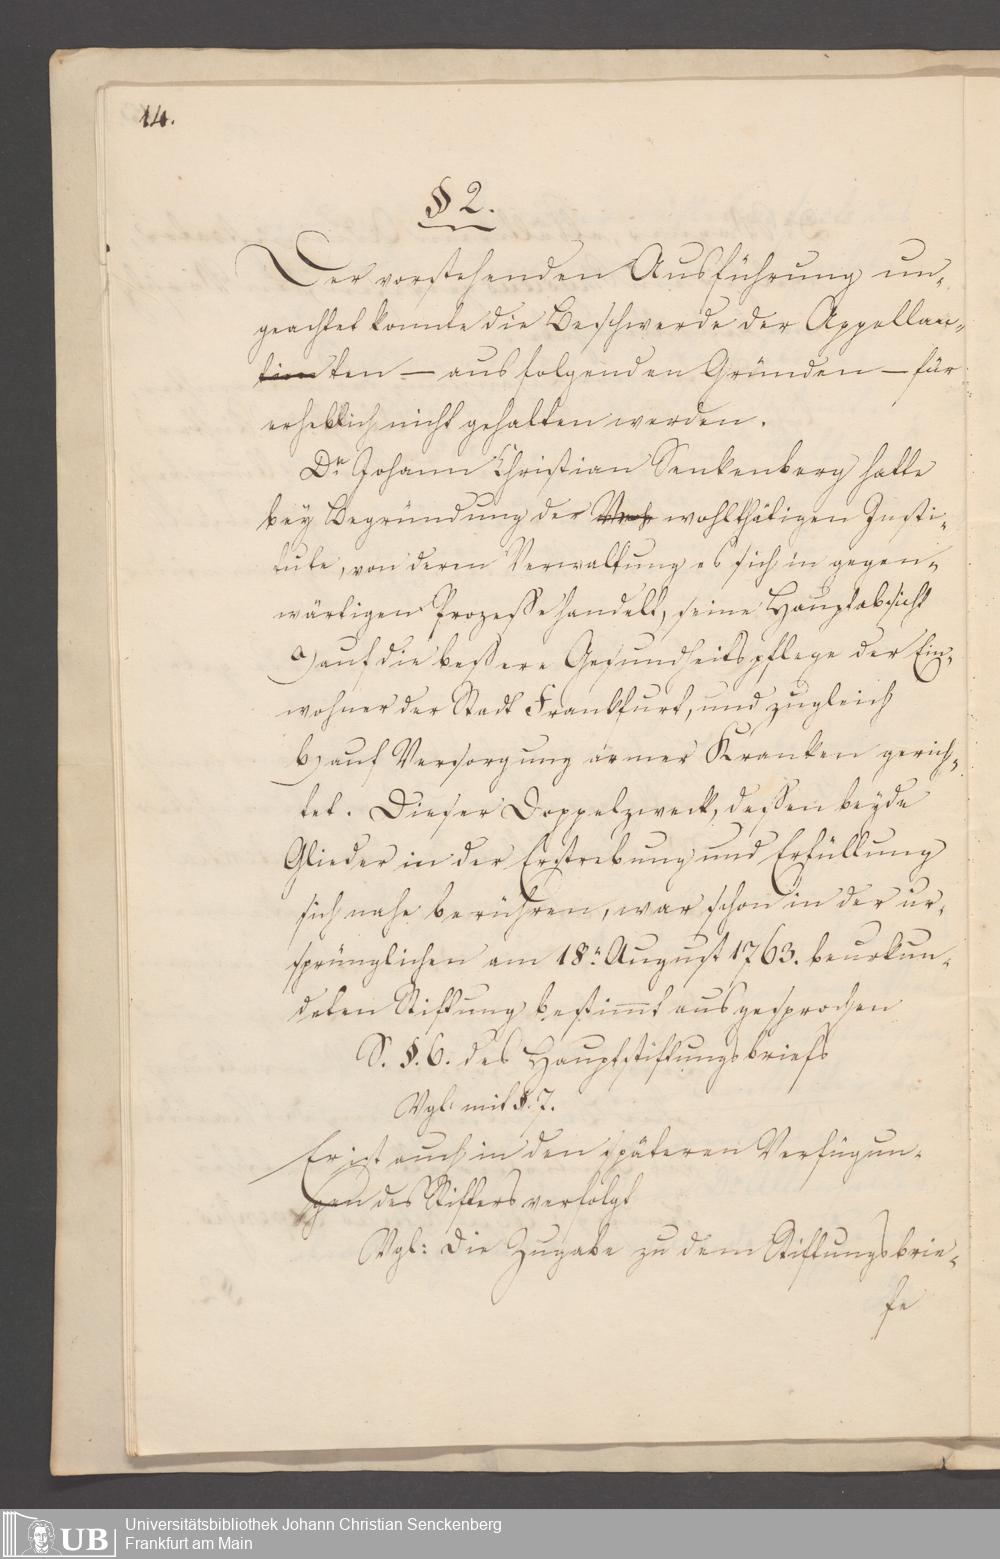 14.
§ 2.
Der vorstehenden Ausführung un-
geachtet konnte die Beschwerde der Appellan-
ten — aus folgenden Gründen — für
erheblich nicht gehalten werden.
Dr. Johann Christian Senkenberg hatte
bey Begründung der wohlthätigen Insti-
tute, von deren Verwaltung es sich in gegen-
wärtigen Prozesse handelt, seine Hauptabsicht
a) auf die bessere Gesundheitspflege der Ein-
wohner der Stadt Frankfurt, und zugleich
b) auf Versorgung armer Kranken gerich-
tet. Dieser Doppelzweck, dessen beyde
Glieder in der Erstrebung und Erfüllung
sich nahe berühren, war schon in der ur-
sprünglichen am 18n. August 1763. beurkun-
deten Stiftung bestimmt ausgesprochen
S. §. 6. des Hauptstiftungsbriefs
Vgl: mit §. 7.
Er ist auch in den späteren Verfügun-
gen des Stifters verfolgt
Vgl: Die Zugabe zu dem Stiftungsbrie-
fe
UB
Universitätsbibliothek Johann Christian Senckenberg
Frankfurt am Main